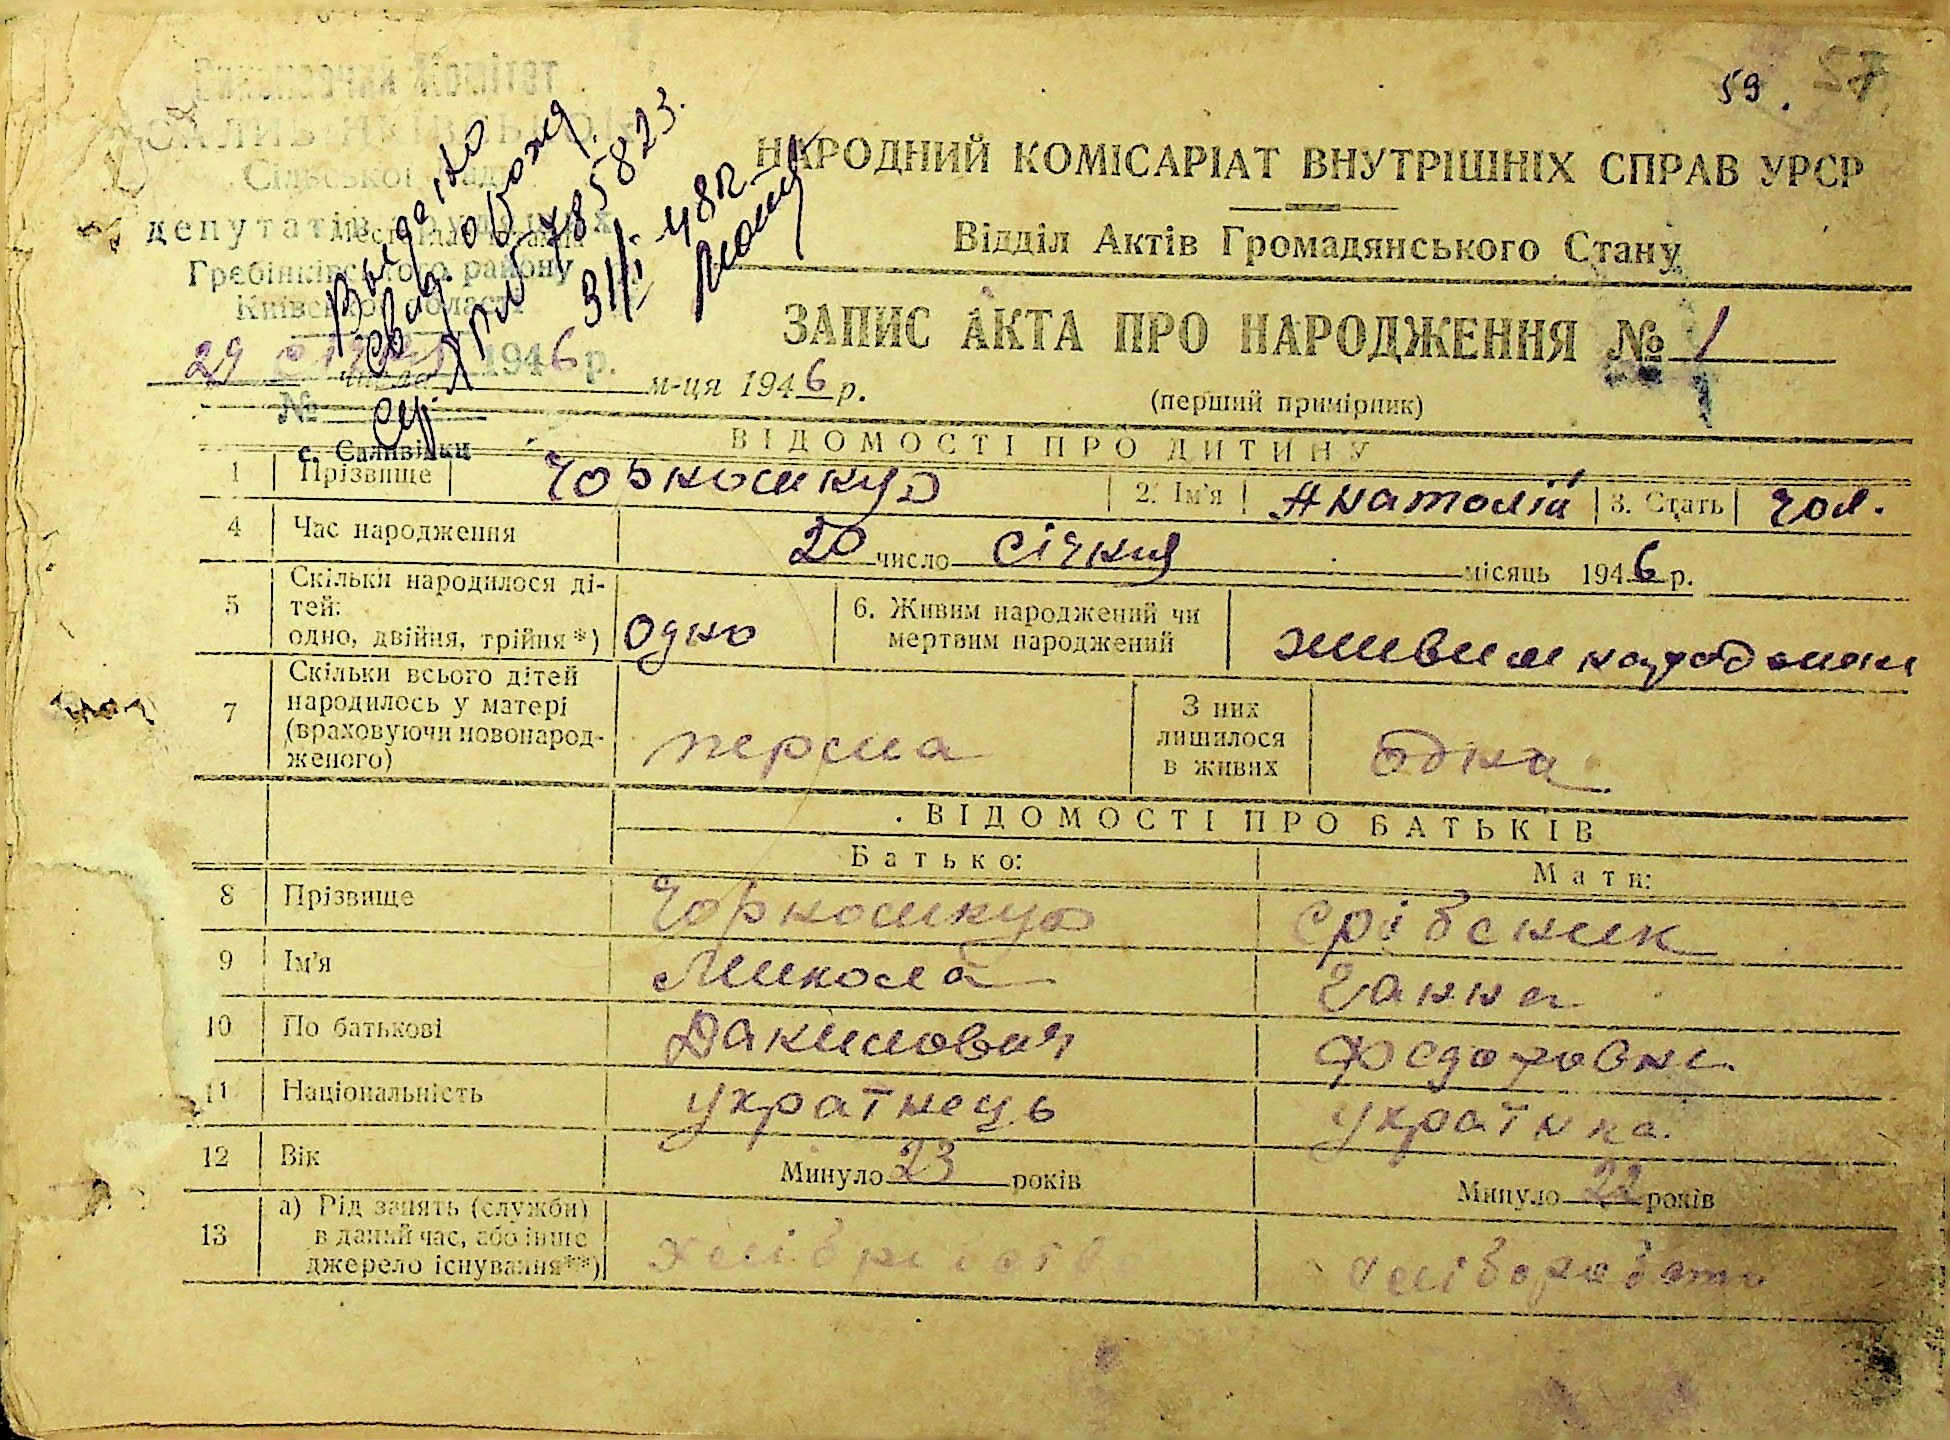 59.
НАРОДНИЙ КОМІСАРІАТ ВНУТРІШНІХ СПРАВ УРСР
Відділ Актів Громадянського Стану
депутатів трудящих
Гребінківського району
Київської області
Видано
свид. о рожд.
31/I-48р
ЗАПИС АКТА ПРО НАРОДЖЕННЯ № 1
29 січня 1946 р.
число м-ця 1946 р.
(перший примірник)
№
с. Саливінки
ВІДОМОСТІ ПРО ДИТИНУ
1 Прізвище Чорномкуо 2. Ім'я Анатолій 3. Стать чол.
4 Час народження 20 число січня місяць 1946 р.
5 Скільки народилося дітей: одно, двійня, трійня*) Одно 6. Живим народжений чи мертвим народжений живим народжений
7 Скільки всього дітей народилось у матері (враховуючи новонародженого) перша З них лишилося в живих одна
ВІДОМОСТІ ПРО БАТЬКІВ
Батько: Мати:
8 Прізвище Срібсник
9 Ім'я Микола Ганна
10 По батькові Данилович Федоровна
11 Національність українець українка
12 Вік Минуло 23 років Минуло 22 років
13 а) Рід занять (служби) в даний час, або інше джерело існування**)